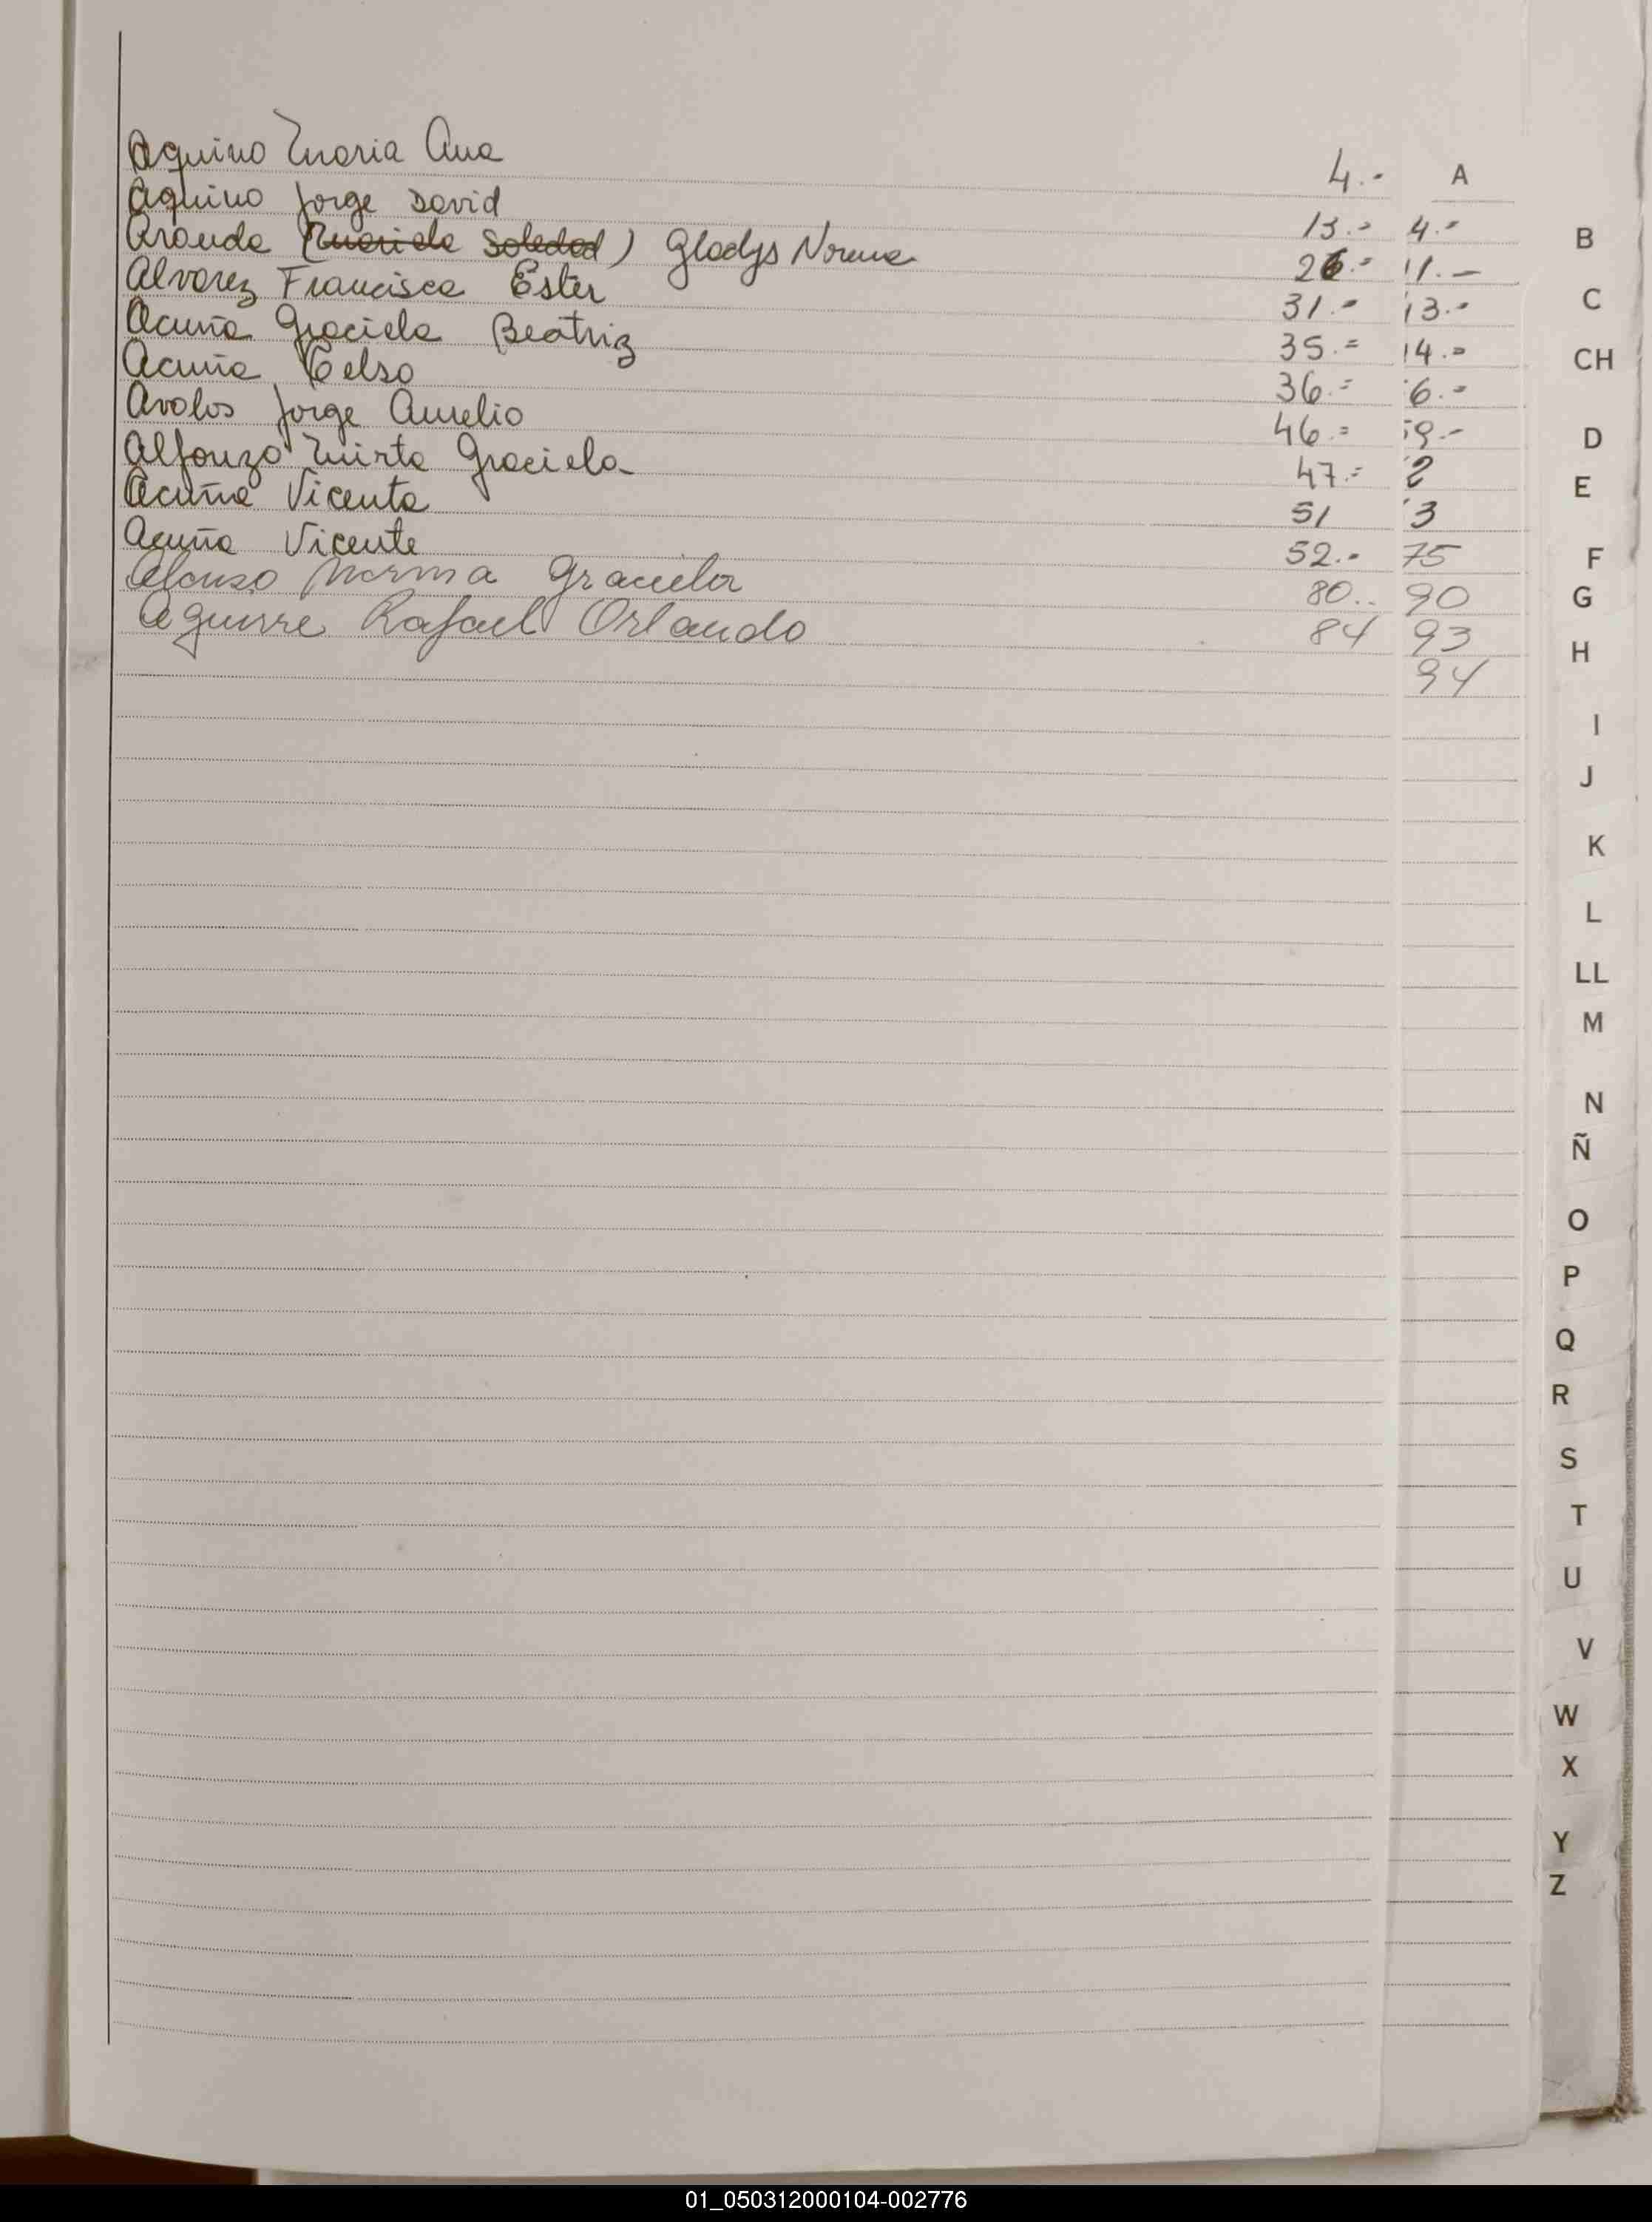 Aquino Maria Ana 4.- A
Aquino Jorge David 13.- 4.-
Aranda (Mariela Soledad) Gladys Norma 26.- 11.-
Alvarez Francisca Ester 31.- 13.-
Acuña Graciela Beatriz 35.- 14.-
Acuña Celso 36.- 6.-
Avalos Jorge Aurelio 46.- 9.-
Alfonzo Mirta Graciela 47.- 2
Acuña Vicenta 51 3
Acuña Vicente 52.- 75
Afonso Norma Graciela 80.. 90
Aguirre Rafael Orlando 84 93
94
B
C
CH
D
E
F
G
H
I
J
K
L
LL
M
N
Ñ
O
P
Q
R
S
T
U
V
W
X
Y
Z
01_050312000104-002776